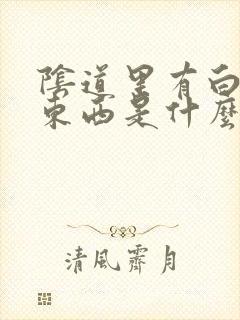 陰道里有白
東西是什麼
清風霽月